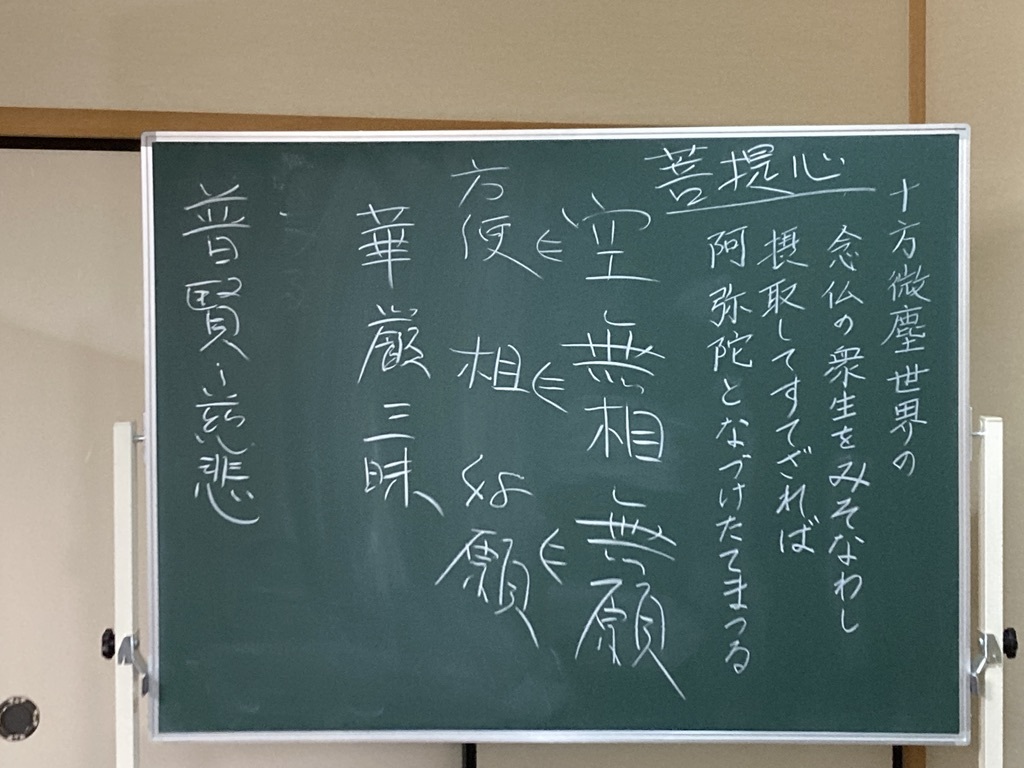 十方微塵世界の
念仏の衆生をみそなわし
摂取してすてざれば
阿弥陀となづけたてまつる
菩提心
空 無相 無願
方便 相 願
華厳三昧
普賢・慈悲